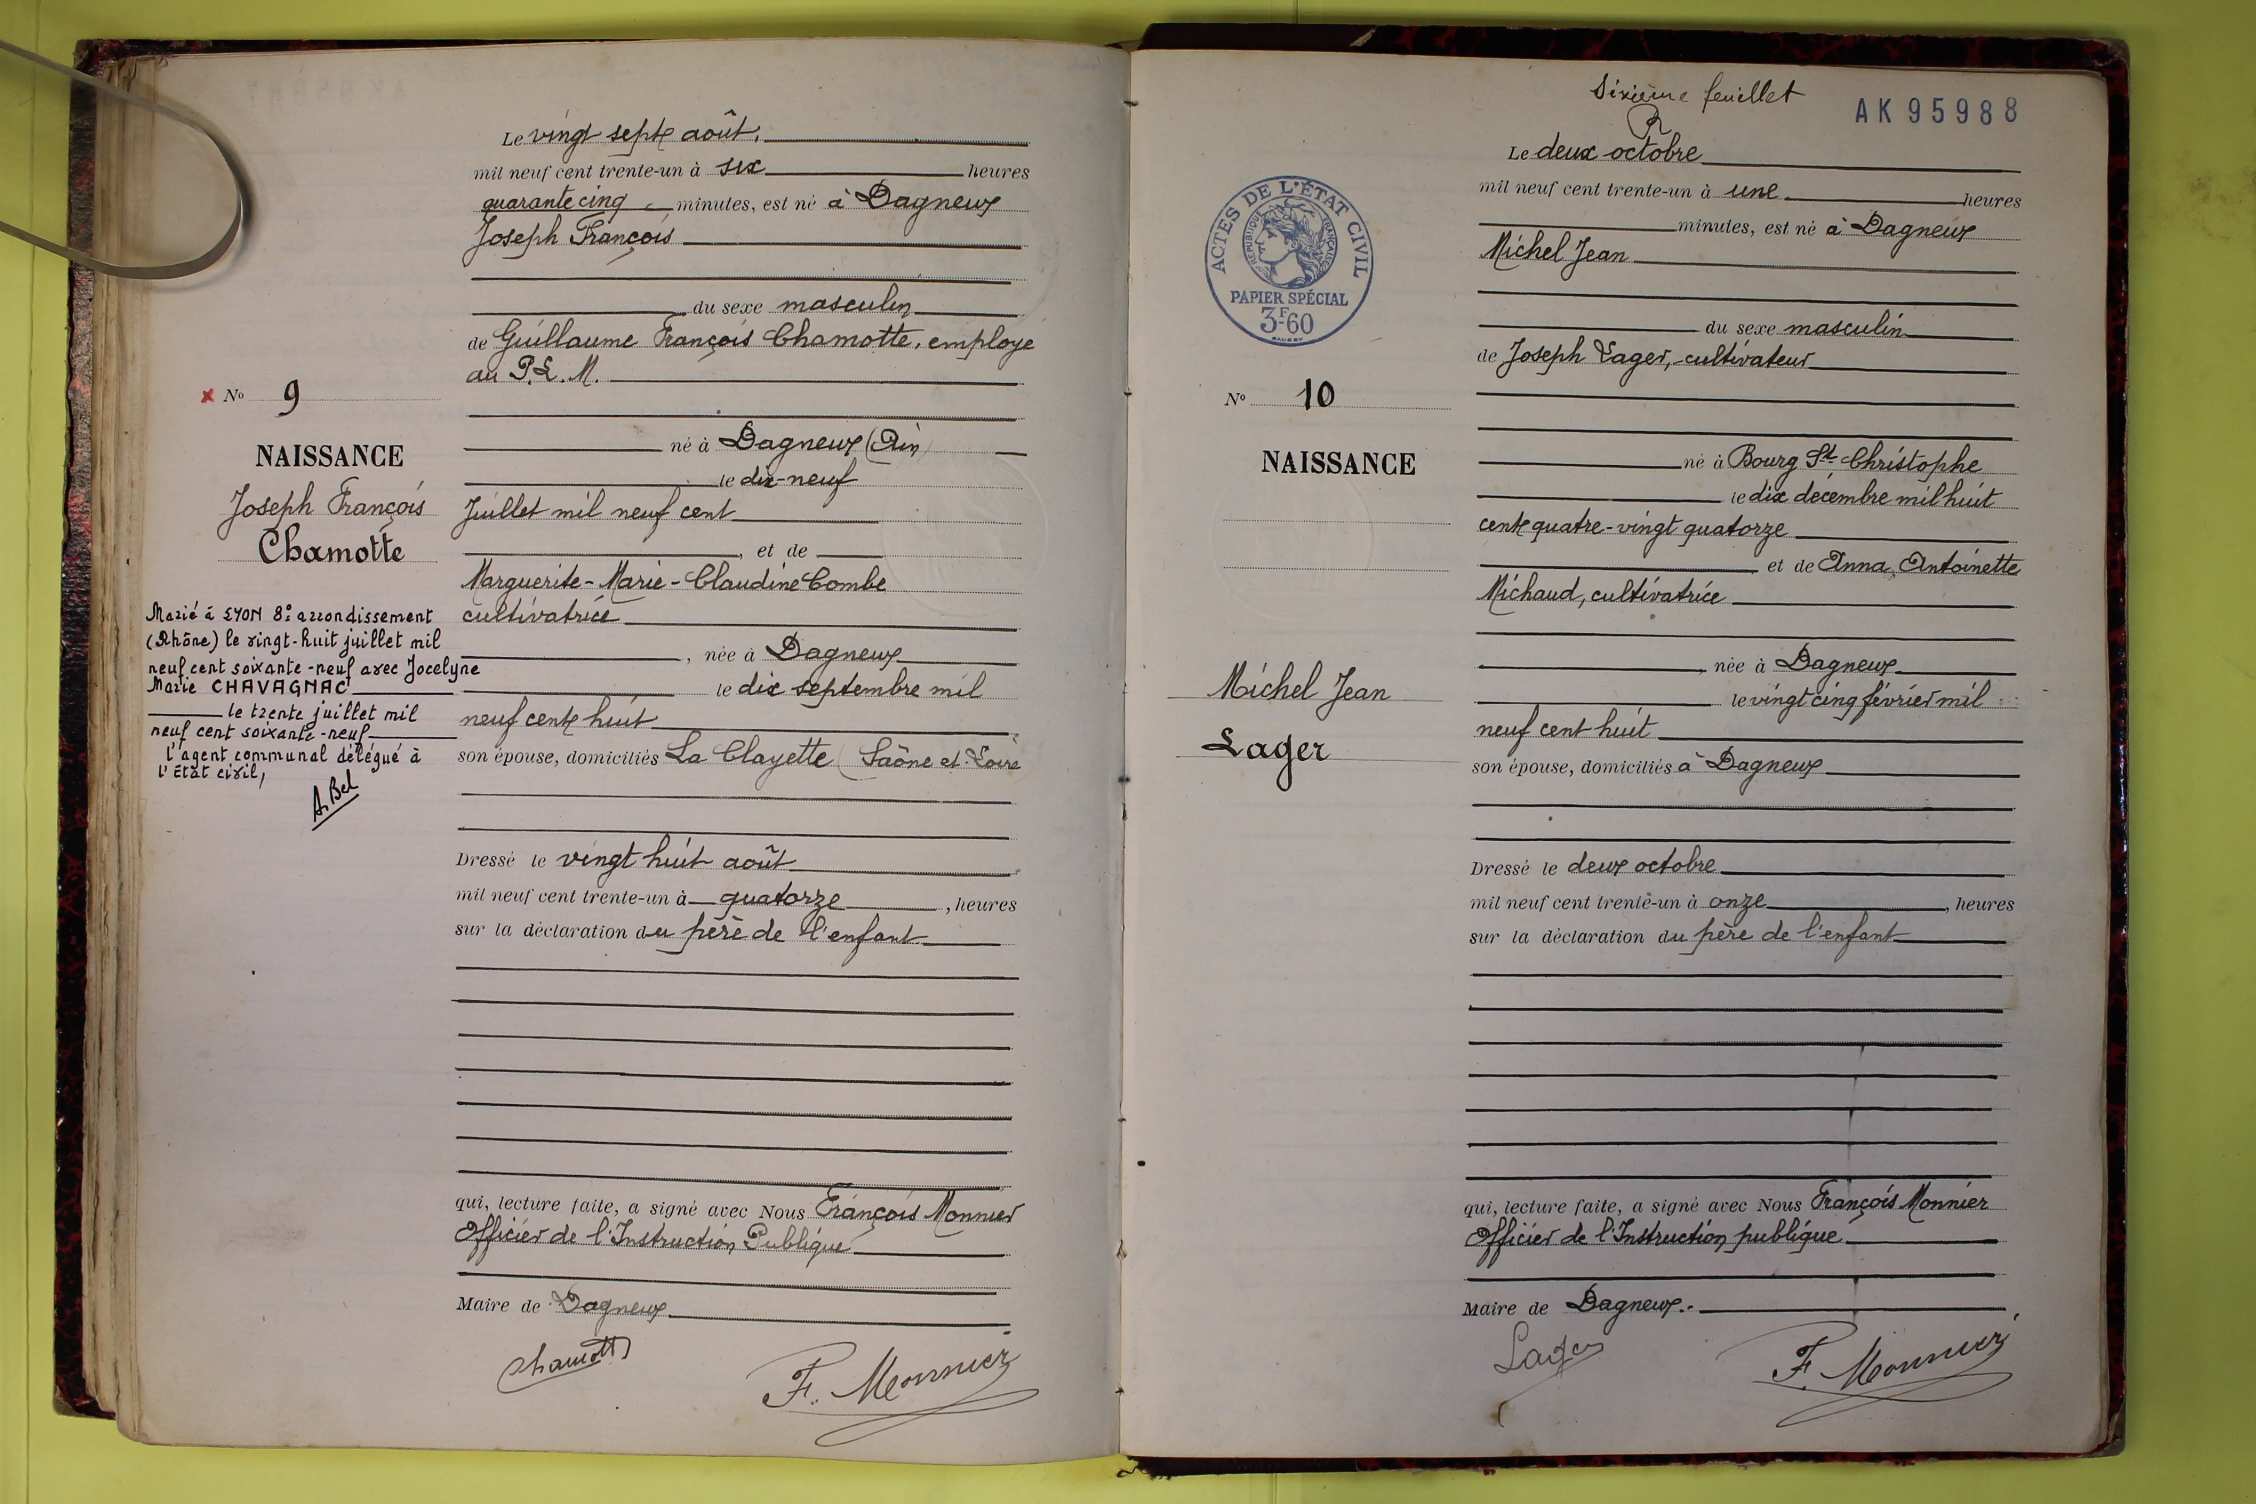 Le vingt sept août.
mil neuf cent trente-un à six heures
quarante cinq minutes, est né à Dagneux
Joseph François
du sexe masculin
de Guillaume François Chamotte, employé
au P.L.M.
né à Dagneux (Ain)
le dix-neuf
Juillet mil neuf cent
, et de
Marguerite-Marie-Claudine Combe
cultivatrice
, née à Dagneux
le dix septembre mil
neuf cent huit
son épouse, domiciliés La Clayette (Saône et Loire
Dressé le vingt huit août
mil neuf cent trente-un à quatorze, heures
sur la déclaration du père de l'enfant
qui, lecture faite, a signé avec Nous François Monnier
Officier de l'Instruction Publique
Maire de Dagneux
Chamotte
F. Monnier
x No 9
NAISSANCE
Joseph François
Chamotte
Marié à LYON 8e arrondissement
(Rhône) le vingt-huit juillet mil
neuf cent soixante-neuf avec Jocelyne
Marie CHAVAGNAC
le trente juillet mil
neuf cent soixante-neuf
L'agent communal délégué à
l'État civil,
A. Bel
Sixième feuillet
AK 95988
Le deux octobre
mil neuf cent trente-un à une heures
minutes, est né à Dagneux
Michel Jean
du sexe masculin
de Joseph Lager, cultivateur
né à Bourg St Christophe
le dix décembre mil huit
cent quatre-vingt quatorze
et de Anna, Antoinette
Michaud, cultivatrice
, née à Dagneux
le vingt cinq février mil
neuf cent huit
son épouse, domiciliés à Dagneux
Dressé le deux octobre
mil neuf cent trente-un à onze, heures
sur la déclaration du père de l'enfant
qui, lecture faite, a signé avec Nous François Monnier
Officier de l'Instruction publique
Maire de Dagneux.
Lager
F. Monnier
ACTES DE L'ÉTAT CIVIL
RÉPUBLIQUE FRANÇAISE
PAPIER SPÉCIAL
3F60
No 10
NAISSANCE
Michel Jean
Lager